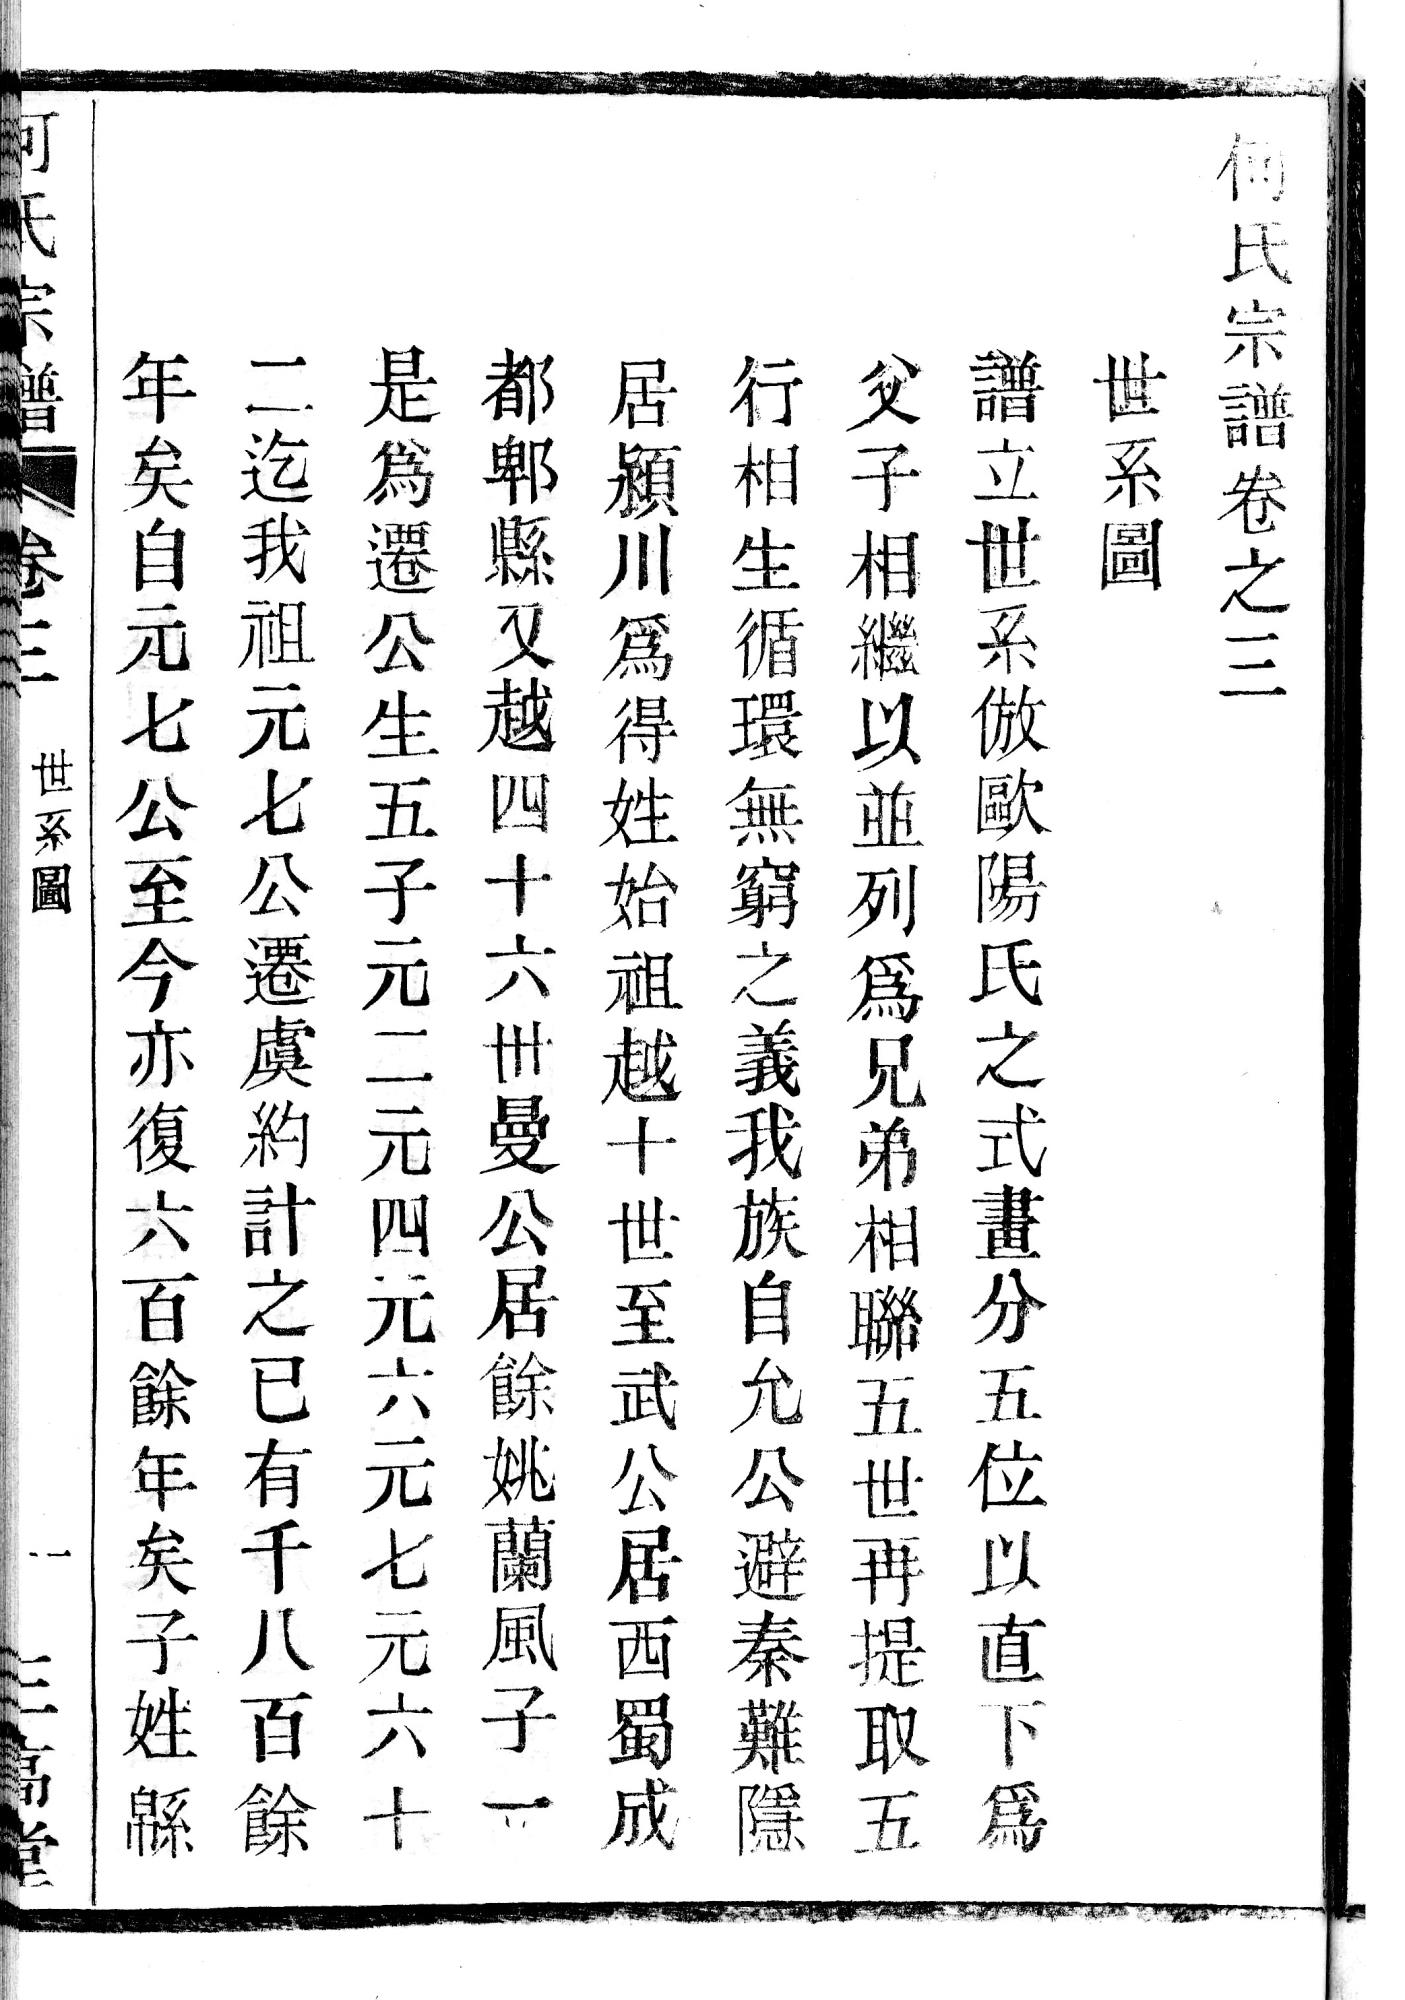 何氏宗譜卷之三
世系圖
譜立世系倣歐陽氏之式畫分五位以直下爲
父子相繼以並列爲兄弟相聯五世再提取五
行相生循環無窮之義我族自允公避秦難隱
居潁川爲得姓始祖越十世至武公居西蜀成
都郫縣又越四十六世曼公居餘姚蘭風子一
是爲遷公生五子元二元四元六元七元六十
二迄我祖元七公遷虞約計之已有千八百餘
年矣自元七公至今亦復六百餘年矣子姓緜
何氏宗譜 卷三 世系圖 一 三高堂